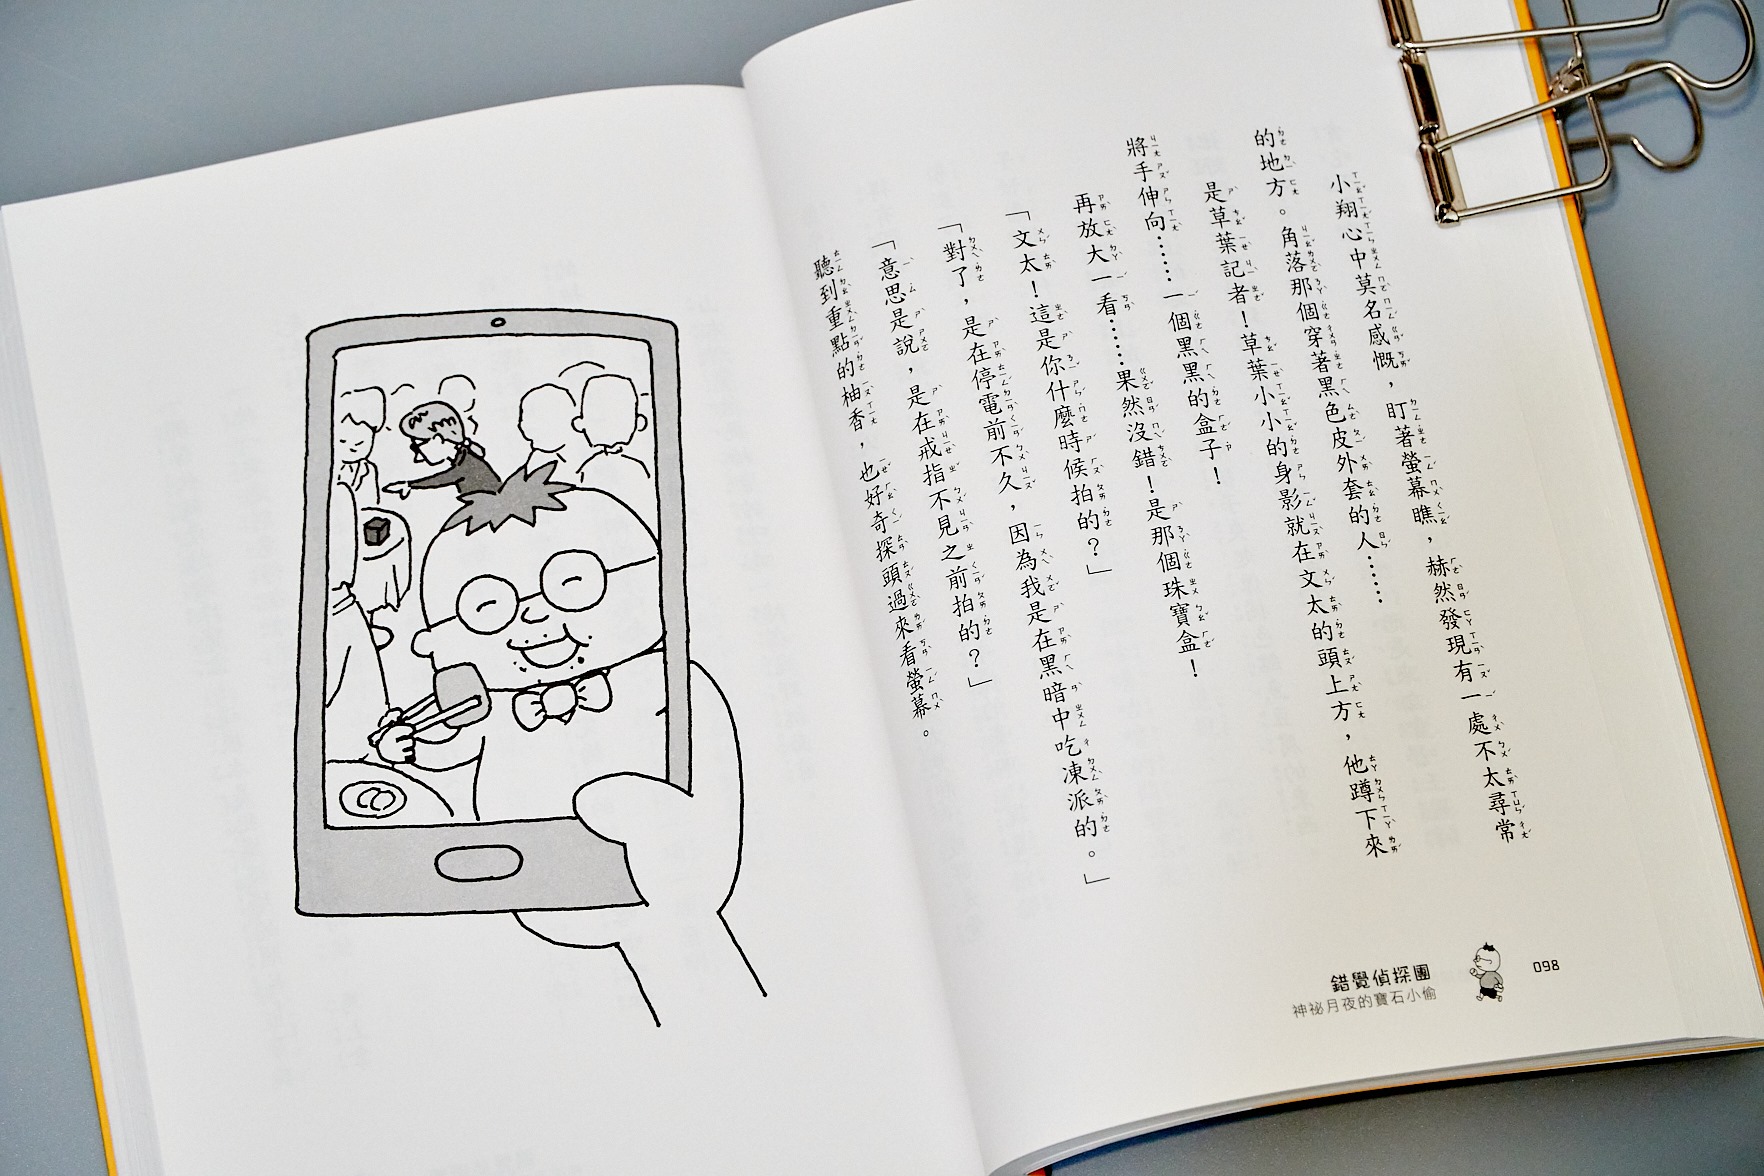 小翔心中莫名感慨，盯著螢幕瞧，赫然發現有一處不太尋常
的地方。角落那個穿著黑色皮外套的人……
是草葉記者！草葉小小的身影就在文太的頭上方，他蹲下來
將手伸向……一個黑黑的盒子！
再放大一看……果然沒錯！是那個珠寶盒！
「文太！這是你什麼時候拍的？」
「對了，是在停電前不久，因為我是在黑暗中吃凍派的。」
「意思是說，是在戒指不見之前拍的？」
聽到重點的柚香，也好奇探頭過來看螢幕。
錯覺偵探團
神祕月夜的寶石小偷
098